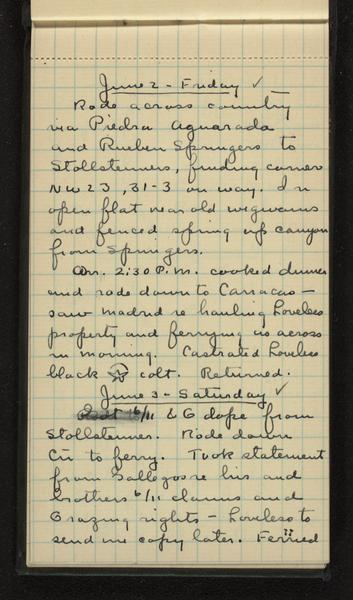 June 2 - Friday ✓
Rode across country
via Piedra Aguarada
and Rueben Springers to
Stollsteimers, finding corner
NW 23, 31-3 on way. In
open flat near old wigwams
and fenced spring up canyon
from Springers.
Arr. 2:30 P.M. cooked dinner
and rode down to Carracas -
saw Madrid re hauling Loveless
property and ferrying us across
in morning. Castrated Loveless
black colt. Returned.
June 3 - Saturday ✓
6/11 & G dope from
Stollsteimer. Rode down
to ferry. Took statement
from Gallegos re his and
brothers 6/11 claims and
Grazing rights - Loveless to
send me copy later. Ferried